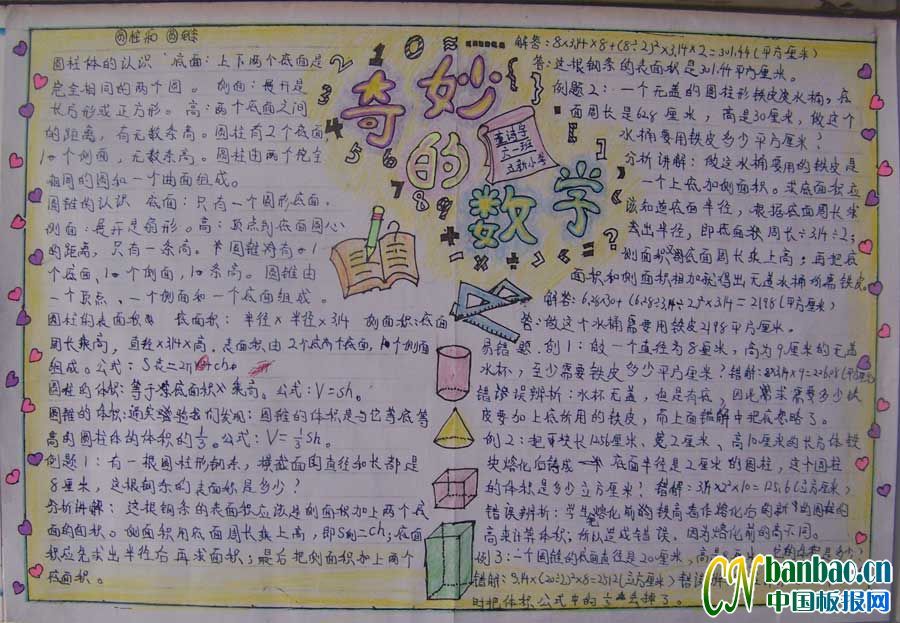 圆柱和圆锥
圆柱体的认识 底面：上下两个底面是
完全相同的两个圆。侧面：展开是
长方形或正方形。高：两个底面之间
的距离，有无数条高。圆柱有2个底面
1个侧面，无数条高。圆柱由两个完全
相同的圆和一个曲面组成。
圆锥的认识 底面：只有一个圆形底面，
侧面：展开是扇形。高：顶点到底面圆心
的距离，只有一条高。圆锥将有1
个底面，1个侧面，1条高。圆锥由
一个顶点、一个侧面和一个底面组成。
圆柱的表面积 底面积：半径×半径×3.14 侧面积：底面
周长乘高，直径×3.14×高。表面积由2个底面，1个侧面
组成。公式：S表=2π
圆柱的体积：等于底面积×乘高。公式：V=sh。
圆锥的体积：通实验我们发现：圆锥的体积是与它等底等
高的圆柱体的体积的1/3。公式：V=1/3sh。
例题1：有一根圆柱形钢条，横截面的直径和长都是
8厘米，这根钢条的表面积是多少？
分析讲解：这根钢条的表面积应该是侧面积加上两个底
面的面积。侧面积用底面周长乘上高，即S侧=Ch；底面
积应先求出半径后再求面积；最后把侧面积加上两个
底面积。
奇妙
的
数学
六一班
立新小学
1 0 ≈
2
3
4
5 6
7
8 9
+
- × ÷ < = ?
解答：8×3.14×8+(8÷2)²×3.14×2=301.44(平方厘米)
答：这根钢条的表面积是301.44平方厘米。
例题2：一个无盖的圆柱形铁皮水桶，底
面周长是62.8厘米，高是30厘米，做这个
水桶要用铁皮多少平方厘米？
分析讲解：做这水桶要用的铁皮是
一个上底加侧面积。求底面积应
该知道底面半径，根据底面周长求
去出半径，即底面周长÷3.14÷2；
侧面积用底面周长乘上高；再把底
面积和侧面积相加就得出无盖水桶所需铁皮。
解答：62.8×30+(62.8÷3.14÷2)²×3.14=2198(平方厘米)
答：做这个水桶需要用铁皮2198平方厘米。
易错题．例1：做一个直径为8厘米，高为9厘米的无盖
水杯，至少需要铁皮多少平方厘米？错解：8×3.14×9=226.08(平方厘米)
错误辨析：水杯无盖，但是有底，因此需求需要多少铁
皮要加上底所用的铁皮，而上面错解中把底忽略了。
例2：把平块长12.56厘米、宽2厘米、高10厘米的长方体铁
块熔化后铸成底面半径是2厘米的圆柱，这个圆柱
的体积是多少立方厘米？错解：3.14×2²×10=125.6(立方厘米)
错误辨析：学生把熔化前的铁高当作熔化后的新的圆柱的
高来计算体积；所以造成错误，因为熔化前的高不同。
例3：一个圆锥的底面直径是20厘米，高是
错解：3.14×(20÷2)²×8=2512(立方厘米)
时把体积公式中的1/3去掉了。
CN banbao.cn
中国板报网